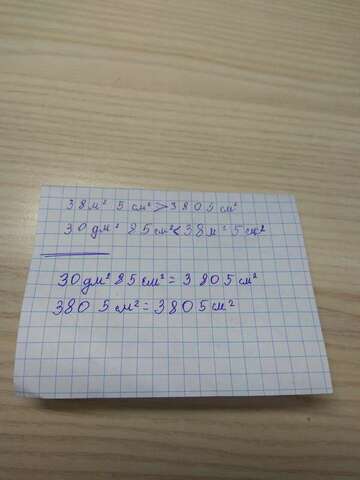 38м² 5 см² > 3805 см²
30дм² 85 см² < 38м² 5 см²
30дм² 85 см² = 3 805 см²
3805 см² = 3805 см²